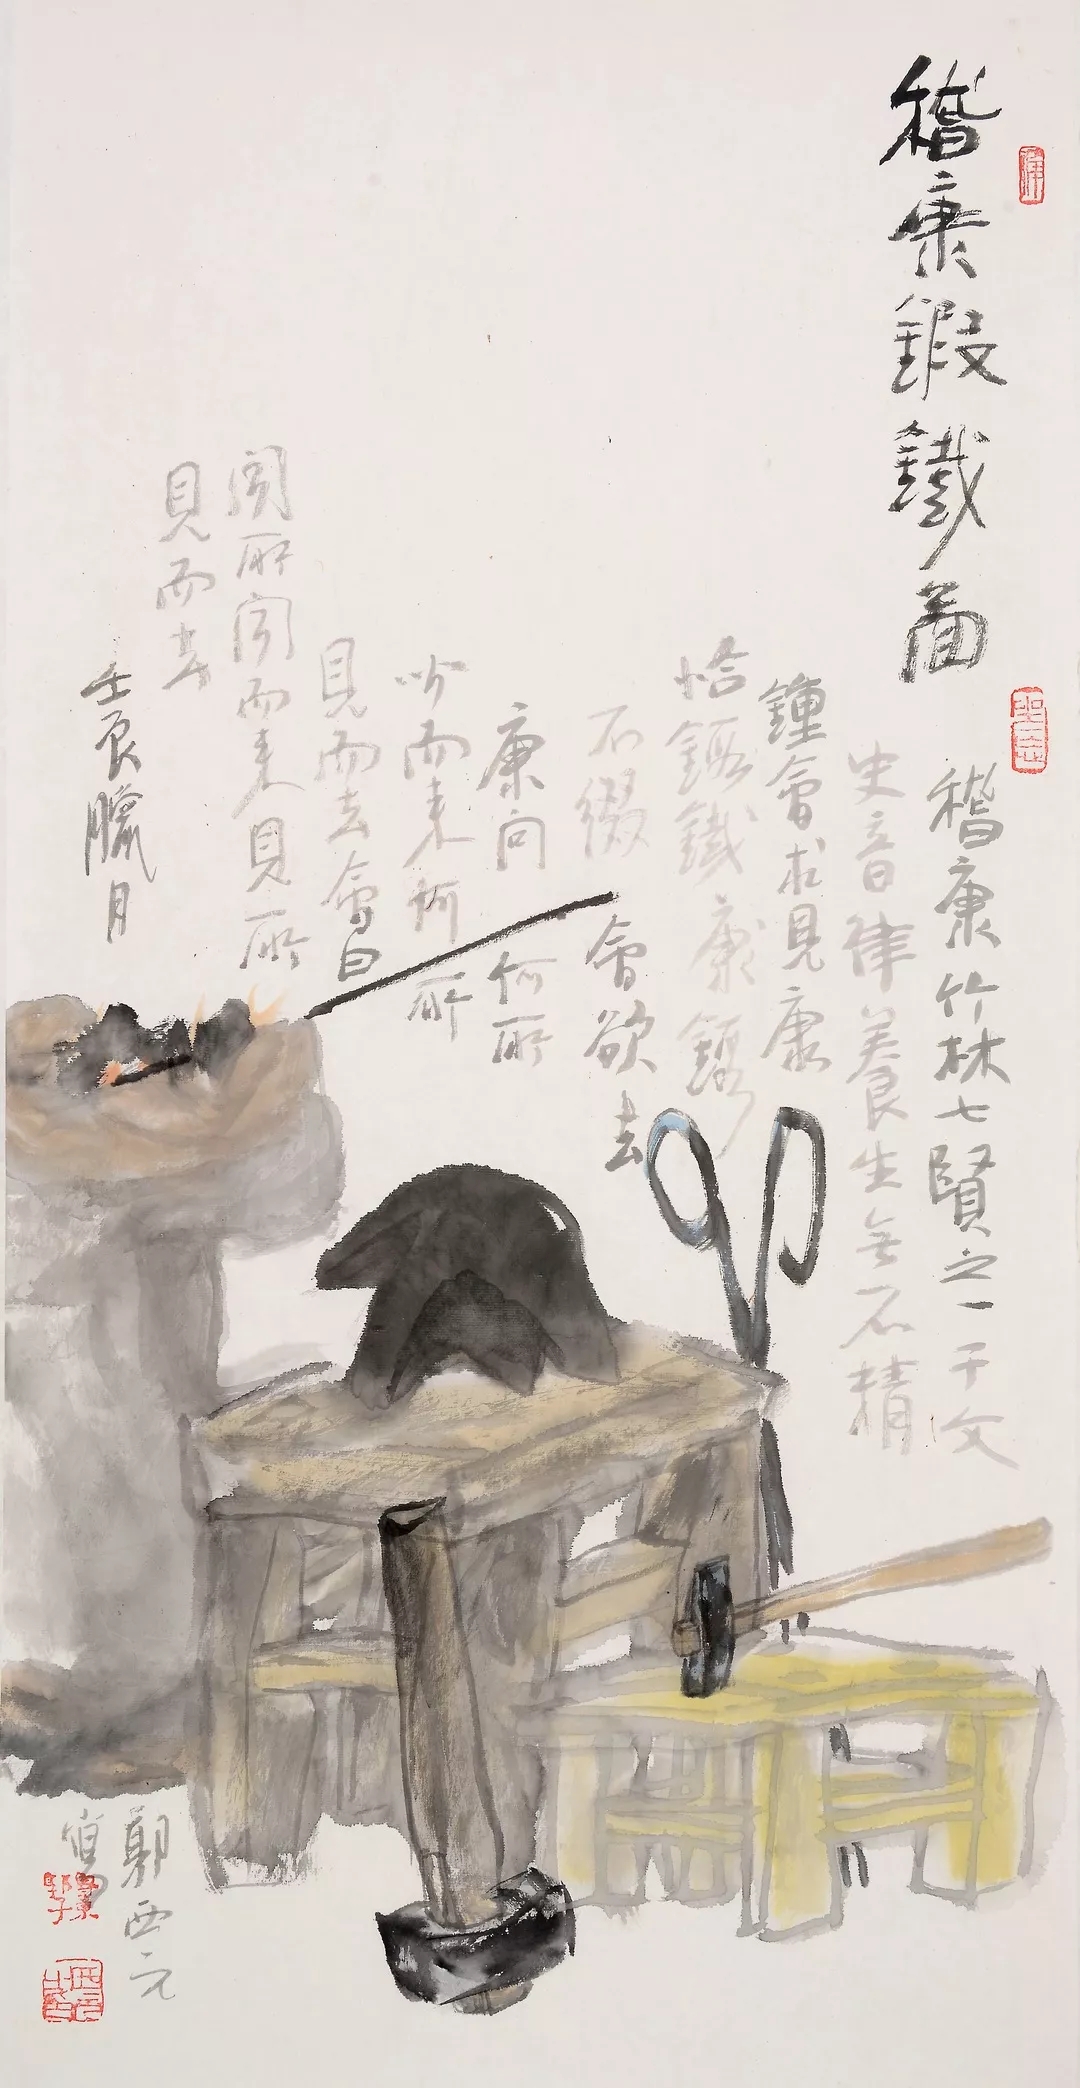 稽康鍛鐵圖
稽康竹林七賢之一于文
史音律養生無不精
鍾會求見康
恰鍛鐵康鍛
不綴會欲去
康问何所
而来何所
見而去會曰
聞所聞而来見所
見而去
壬辰臘月
鄭西元
寫